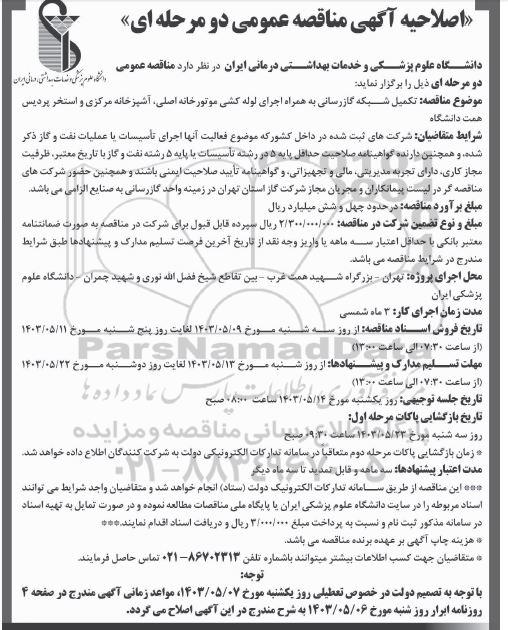 «اصلاحیه آگهی مناقصه عمومی دو مرحله ای»
دانشگاه علوم پزشکی و خدمات بهداشتی، درمانی ایران
دانشگاه علوم پزشکی و خدمات بهداشتی درمانی ایران در نظر دارد مناقصه عمومی
دو مرحله ای ذیل را برگزار نماید:
موضوع مناقصه: تکمیل شبکه گازرسانی به همراه اجرای لوله کشی موتورخانه اصلی، آشپزخانه مرکزی و استخر پردیس
همت دانشگاه
شرایط متقاضیان: شرکت های ثبت شده در داخل کشور که موضوع فعالیت آنها اجرای تأسیسات یا عملیات نفت و گاز ذکر
شده، و همچنین دارنده گواهینامه صلاحیت حداقل پایه ۵ در رشته تأسیسات یا پایه ۵ رشته نفت و گاز با تاریخ معتبر، ظرفیت
مجاز کاری، دارای تجربه مدیریتی، مالی و تجهیزاتی، و گواهینامه تأیید صلاحیت ایمنی باشند و همچنین حضور شرکت های
مناقصه گر در لیست پیمانکاران و مجریان مجاز شرکت گاز استان تهران در زمینه واحد گازرسانی به صنایع الزامی می باشد.
مبلغ برآورد مناقصه: در حدود چهل و شش میلیارد ریال
مبلغ و نوع تضمین شرکت در مناقصه: ۲/۳۰۰/۰۰۰/۰۰۰ ریال سپرده قابل قبول برای شرکت در مناقصه به صورت ضمانتنامه
معتبر بانکی با حداقل اعتبار سه ماهه یا واریز وجه نقد از تاریخ آخرین فرصت تسلیم مدارک و پیشنهادها طبق شرایط
مندرج در شرایط مناقصه می باشد.
محل اجرای پروژه: تهران - بزرگراه شهید همت غرب - بین تقاطع شیخ فضل الله نوری و شهید چمران - دانشگاه علوم
پزشکی ایران
مدت زمان اجرای کار: ۳ ماه شمسی
تاریخ فروش اسناد مناقصه: از روز سه شنبه مورخ ۱۴۰۳/۰۵/۰۹ لغایت روز پنج شنبه مورخ ۱۴۰۳/۰۵/۱۱
(از ساعت ۰۷:۳۰ الی ساعت ۱۳:۰۰)
مهلت تسلیم مدارک و پیشنهادها: از روز شنبه مورخ ۱۴۰۳/۰۵/۱۳ لغایت روز دوشنبه مورخ ۱۴۰۳/۰۵/۲۲
(از ساعت ۰۷:۳۰ الی ساعت ۱۳:۰۰)
تاریخ جلسه توجیهی: روز یکشنبه مورخ ۱۴۰۳/۰۵/۱۴ ساعت ۰۸:۰۰ صبح
تاریخ بازگشایی پاکات مرحله اول:
روز سه شنبه مورخ ۱۴۰۳/۰۵/۲۳ ساعت ۰۹:۳۰ صبح
* زمان بازگشایی پاکات مرحله دوم متعاقبا در سامانه تدارکات الکترونیکی دولت به شرکت کنندگان اطلاع داده خواهد شد.
مدت اعتبار پیشنهادها: سه ماهه و قابل تمدید تا سه ماه دیگر
*** این مناقصه از طریق سامانه تدارکات الکترونیک دولت (ستاد) انجام خواهد شد و متقاضیان واجد شرایط می توانند
اسناد مربوطه را در سایت دانشگاه علوم پزشکی ایران یا پایگاه ملی مناقصات مطالعه نموده و در صورت تمایل به تهیه اسناد
در سامانه مذکور ثبت نام و نسبت به پرداخت مبلغ ۳/۰۰۰/۰۰۰ ریال و دریافت اسناد اقدام نمایند.***
* هزینه چاپ آگهی بر عهده برنده مناقصه می باشد.
* متقاضیان جهت کسب اطلاعات بیشتر میتوانند باشماره تلفن ۸۶۷۰۲۳۱۳-۰۲۱ تماس حاصل فرمایند.
توجه:
با توجه به تصمیم دولت در خصوص تعطیلی روز یکشنبه مورخ ۱۴۰۳/۰۵/۰۷، مواعد زمانی آگهی مندرج در صفحه ۴
روزنامه ابرار روز شنبه مورخ ۱۴۰۳/۰۵/۰۶ به شرح مندرج در این آگهی اصلاح می گردد.
ParsNamadData
پایگاه اطلاع رسانی مناقصه و مزایده